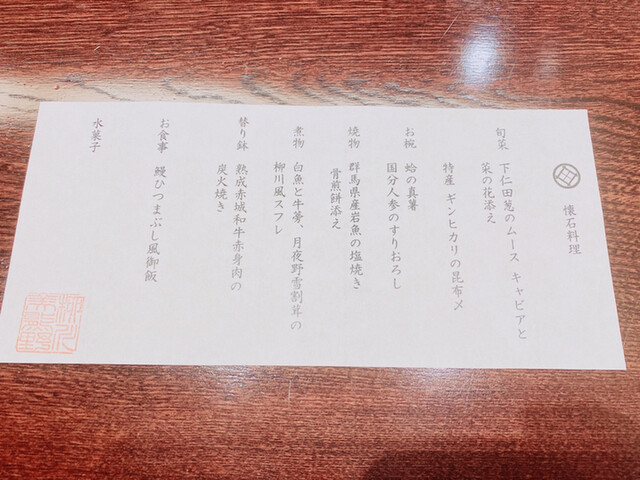 懐石料理
旬菜 下仁田葱のムース キャビアと
菜の花添え
特産 ギンヒカリの昆布〆
お椀 蛤の真薯
国分人参のすりおろし
焼物 群馬県産岩魚の塩焼き
骨煎餅添え
煮物 白魚と牛蒡、月夜野雪割茸の
柳川風スフレ
替り鉢 熟成赤城和牛赤身肉の
炭火焼き
お食事 鰻ひつまぶし風御飯
水菓子